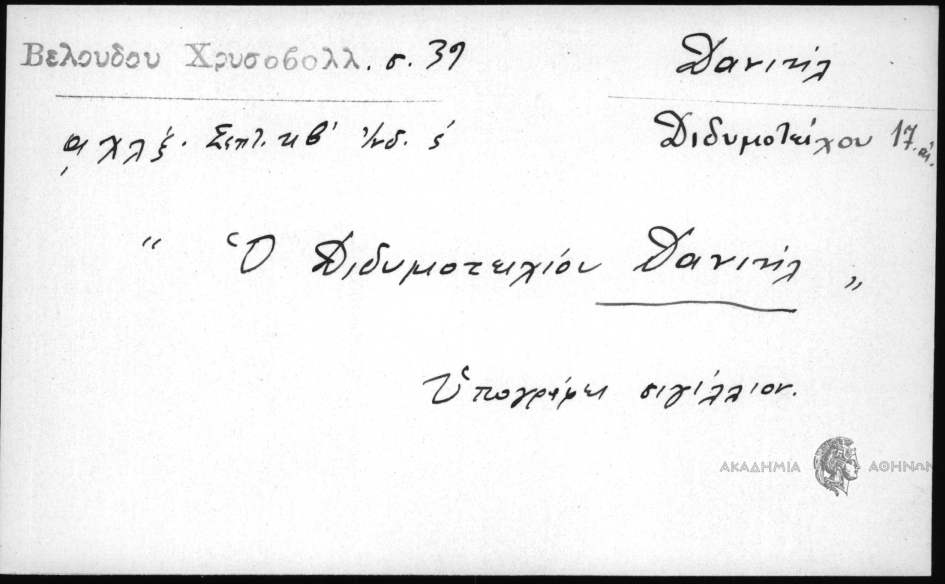 Βελουδου Χρυσοβολλ. σ. 39
Δανιὴλ
͵αχλξ. Σεπτ. κβ' Ἰνδ. έ
Διδυμοτείχου 17 αἰ.
" Ὁ Διδυμοτειχίου Δανιὴλ "
Ὑπογράφει σιγίλλιον.
ΑΚΑΔΗΜΙΑ ΑΘΗΝΩΝ